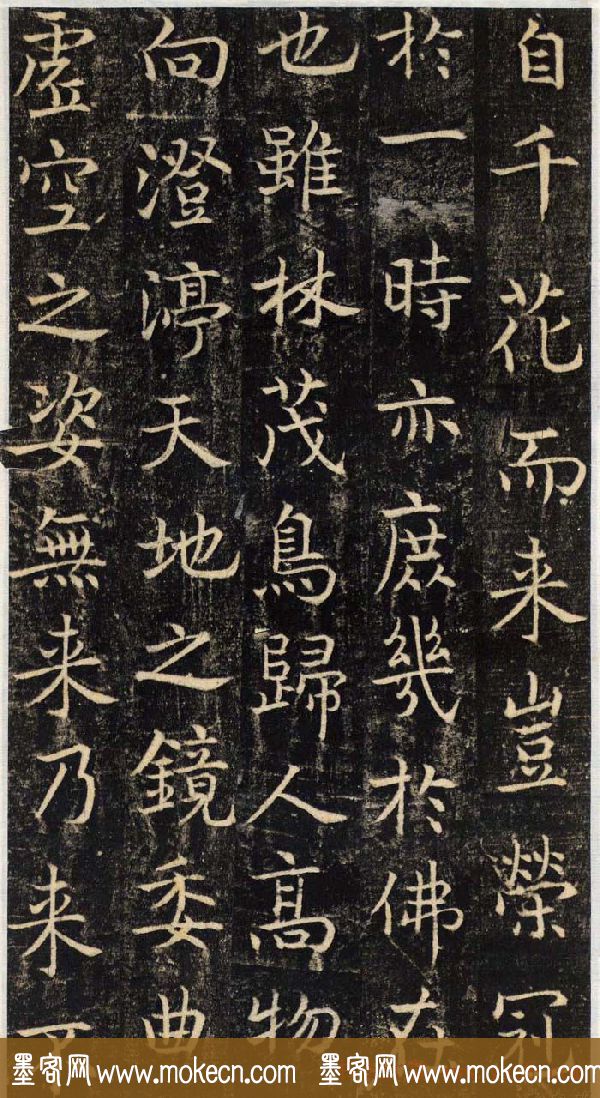 自千花而来豈榮冠
於一時亦庶幾於佛在
也雖林茂鳥歸人高物
向澄渟天地之鏡委曲
虛空之姿無来乃来
墨客网 www.mokecn.com 墨客网 www.mokecn.com